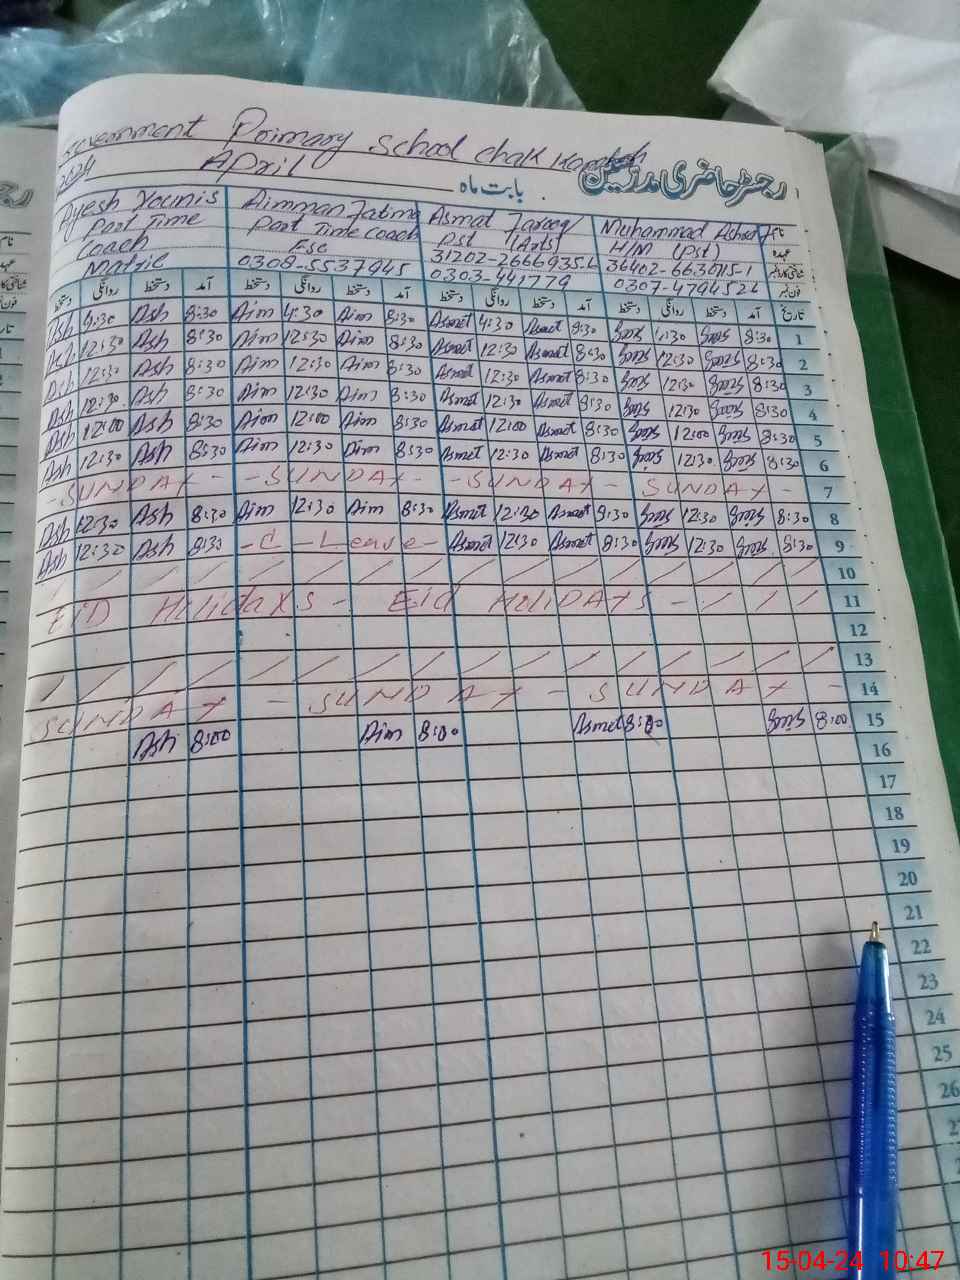 Government Primary School Chak
رجسٹر حاضری مدرسین
بابت ماہ April 2024
Ayesh Younis Aimman Fatima Asmat Farooq Muhammad Ashraf نام
Part Time Part Time Coach Pst (Arts) H/M (Pst) عہدہ
Coach Fsc 31202-2666935-6 36402-6630115-1 شناختی کارڈ نمبر
Matric 0308-5537945 0303-441779 0307-4794524 فون نمبر
دستخط روانگی دستخط آمد دستخط روانگی دستخط آمد دستخط روانگی دستخط آمد دستخط روانگی دستخط آمد تاریخ
Ash 4:30 Ash 8:30 Aim 4:30 Aim 8:30 Asmat 4:30 Asmat 8:30 8:30 1
Ash 12:30 Ash 8:30 Aim 12:30 Aim 8:30 Asmat 12:30 Asmat 8:30 12:30 8:30 2
Ash 12:30 Ash 8:30 Aim 12:30 Aim 8:30 Asmat 12:30 Asmat 8:30 12:30 8:30 3
Ash 12:30 Ash 8:30 Aim 12:30 Aim 8:30 Asmat 12:30 Asmat 8:30 12:30 8:30 4
Ash 12:00 Ash 8:30 Aim 12:00 Aim 8:30 Asmat 12:00 Asmat 8:30 12:00 8:30 5
Ash 12:30 Ash 8:30 Aim 12:30 Aim 8:30 Asmat 12:30 Asmat 8:30 12:30 8:30 6
- SUNDAY - - SUNDAY - - SUNDAY - SUNDAY - 7
Ash 12:30 Ash 8:30 Aim 12:30 Aim 8:30 Asmat 12:30 Asmat 8:30 12:30 8:30 8
Ash 12:30 Ash 8:30 - C - Leave - Asmat 12:30 Asmat 8:30 12:30 8:30 9
/ / / / / / / / / / / / / / / 10
EiD HoliDaYs - Eid HoliDAYs - / / / 11
12
/ / / / / / / / / / / / / / / 13
SUNDAY - SUNDAY - SUNDAY - 14
Ash 8:00 Aim 8:00 Asmat 8:00 8:00 15
16
17
18
19
20
21
22
23
24
25
26
15-04-24 10:47